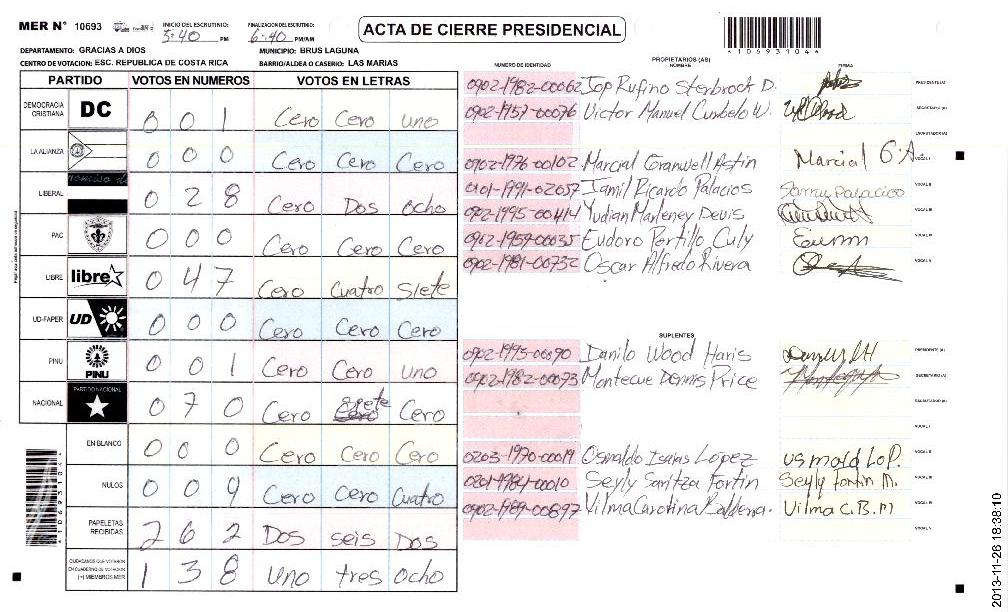 MER N° 10693 INICIO DEL ESCRUTINIO: 5:40 PM FINALIZACION DEL ESCRUTINIO: 6:40 PM/AM
ACTA DE CIERRE PRESIDENCIAL
1069310 44
DEPARTAMENTO: GRACIAS A DIOS MUNICIPIO: BRUS LAGUNA
CENTRO DE VOTACION: ESC. REPUBLICA DE COSTA RICA BARRIO/ALDEA O CASERIO: LAS MARIAS
PARTIDO VOTOS EN NUMEROS VOTOS EN LETRAS
DEMOCRACIA CRISTIANA DC 0 0 1 Cero Cero uno
LA ALIANZA 0 0 0 Cero Cero Cero
LIBERAL 0 2 8 Cero Dos ocho
PAC 0 0 0 Cero Cero Cero
LIBRE libre 0 4 7 Cero Cuatro Siete
UD-FAPER UD 0 0 0 Cero Cero Cero
PINU PINU 0 0 1 Cero Cero uno
NACIONAL PARTIDO NACIONAL 0 7 0 Cero siete Cero
EN BLANCO 0 0 0 Cero Cero Cero
NULOS 0 0 4 Cero Cero Cuatro
PAPELETAS RECIBIDAS 2 6 2 Dos seis Dos
CIUDADANOS QUE VOTARON EN CUADERNO DE VOTACION (+) MIEMBROS MER 1 3 8 uno tres ocho
PROPIETARIOS (AS)
NUMERO DE IDENTIDAD NOMBRE FIRMA
0902-1982-00062 Rufino D. PRESIDENTE (A)
0902-1957-00076 Victor Manuel W. SECRETARIO (A)
ESCRUTADOR (A)
0902-1976-00102 Marcial Marcial VOCAL I
0101-1991-02057 Jamil Ricardo Palacios VOCAL II
0902-1995-00414 Yudian Marleney Devis VOCAL III
0902-1959-00035 Eudoro Portillo Culy VOCAL IV
0902-1981-00732 Oscar Alfredo Rivera VOCAL V
SUPLENTES
0902-1995-00090 Danilo Wood Haris PRESIDENTE (A)
0902-1982-00073 Dennis Price SECRETARIO (A)
ESCRUTADOR (A)
VOCAL I
0203-1970-00019 Osmaldo Isaias Lopez VOCAL II
0201-1984-00010 Seyly Fortin Seyly Fortin M. VOCAL III
0902-1989-00897 Vilma Carolina Vilma C.B.M VOCAL IV
VOCAL V
2013-11-26 18:38:10